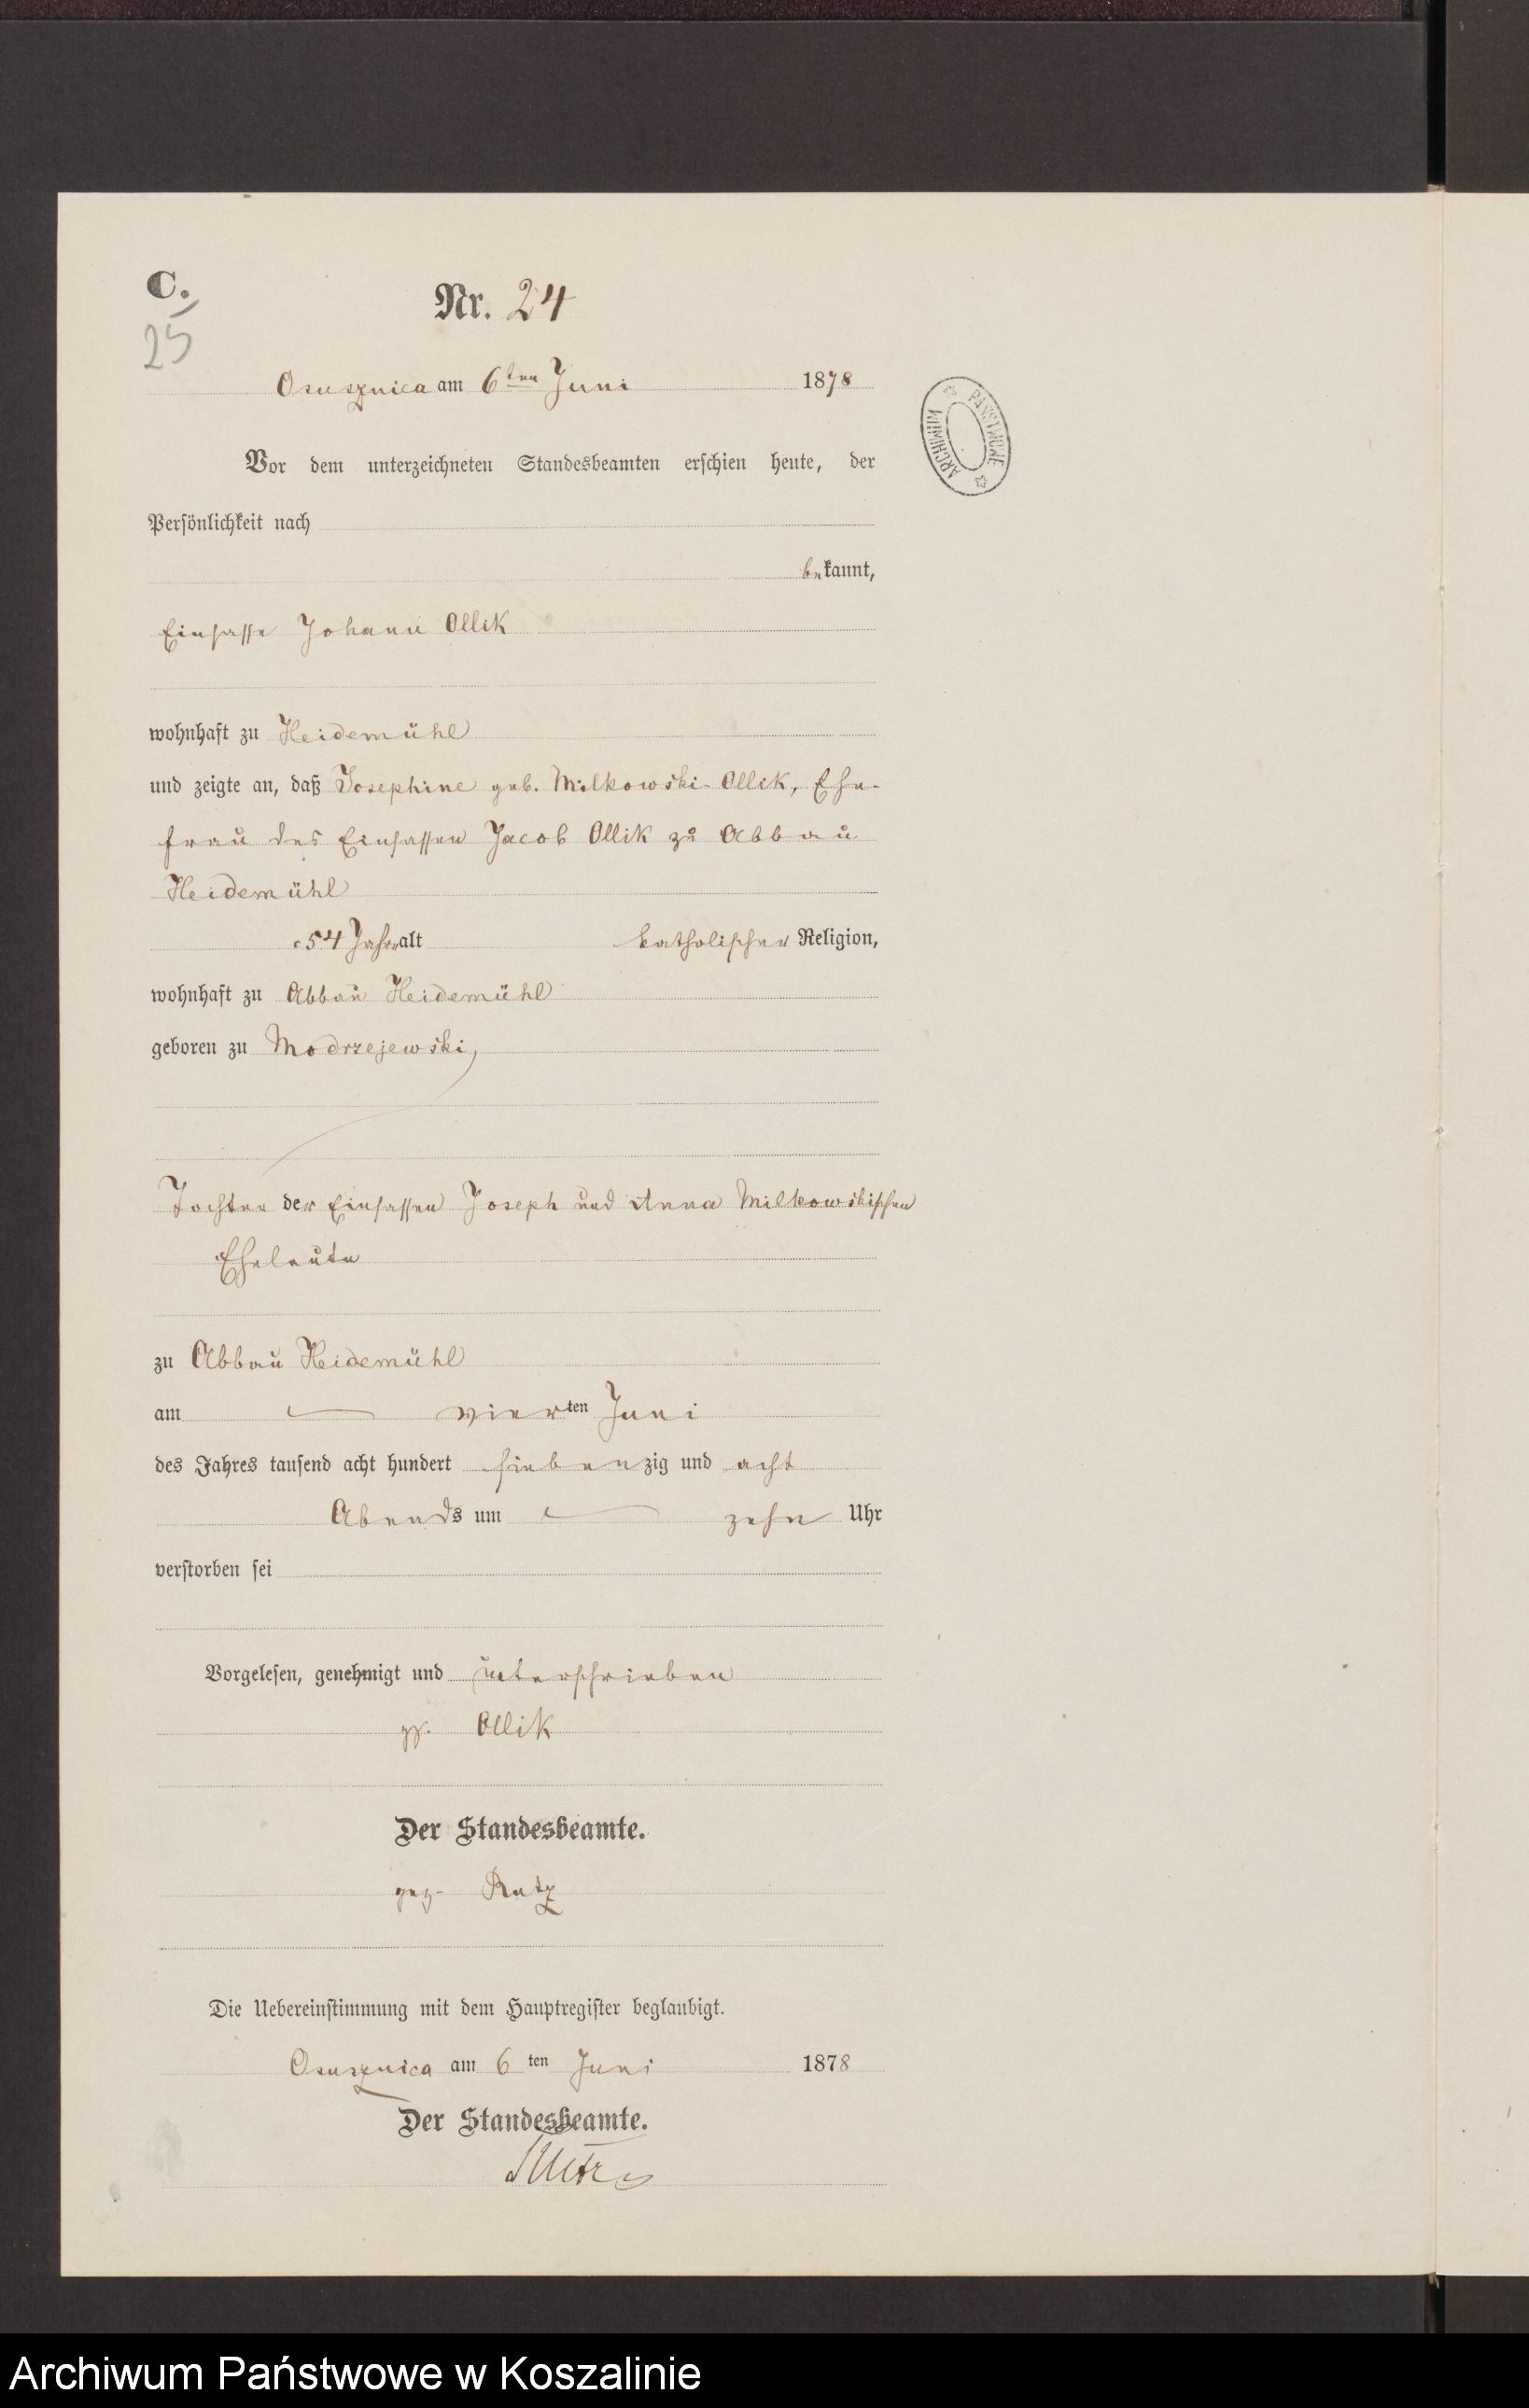 C.
25
Nr. 24
Osusznica am 6ten Juni 1878
ARCHIWUM PAŃSTWOWE
Vor dem unterzeichneten Standesbeamten erschien heute, der
Persönlichkeit nach
bekannt,
Einsasse Johann Ollik
wohnhaft zu Heidemühl
und zeigte an, daß Josephine geb. Milkowski-Ollik, Ehe-
frau des Einsassen Jacob Ollik zu Abbau
Heidemühl
54 Jahr alt katholischer Religion,
wohnhaft zu Abbau Heidemühl
geboren zu Modrzejewski,
Tochter der Einsassen Joseph und Anna Milkowskischen
Eheleute
zu Abbau Heidemühl
am vierten Juni
des Jahres tausend acht hundert siebenzig und acht
Abends um zehn Uhr
verstorben sei
Vorgelesen, genehmigt und unterschrieben
gz. Ollik
Der Standesbeamte.
gez. Rutz
Die Uebereinstimmung mit dem Hauptregister beglaubigt.
Osusznica am 6ten Juni 1878
Der Standesbeamte.
Archiwum Państwowe w Koszalinie